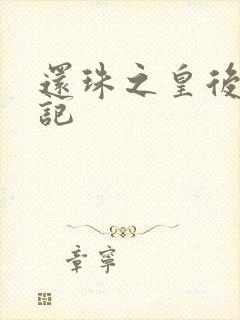 還珠之皇後
記
章寧